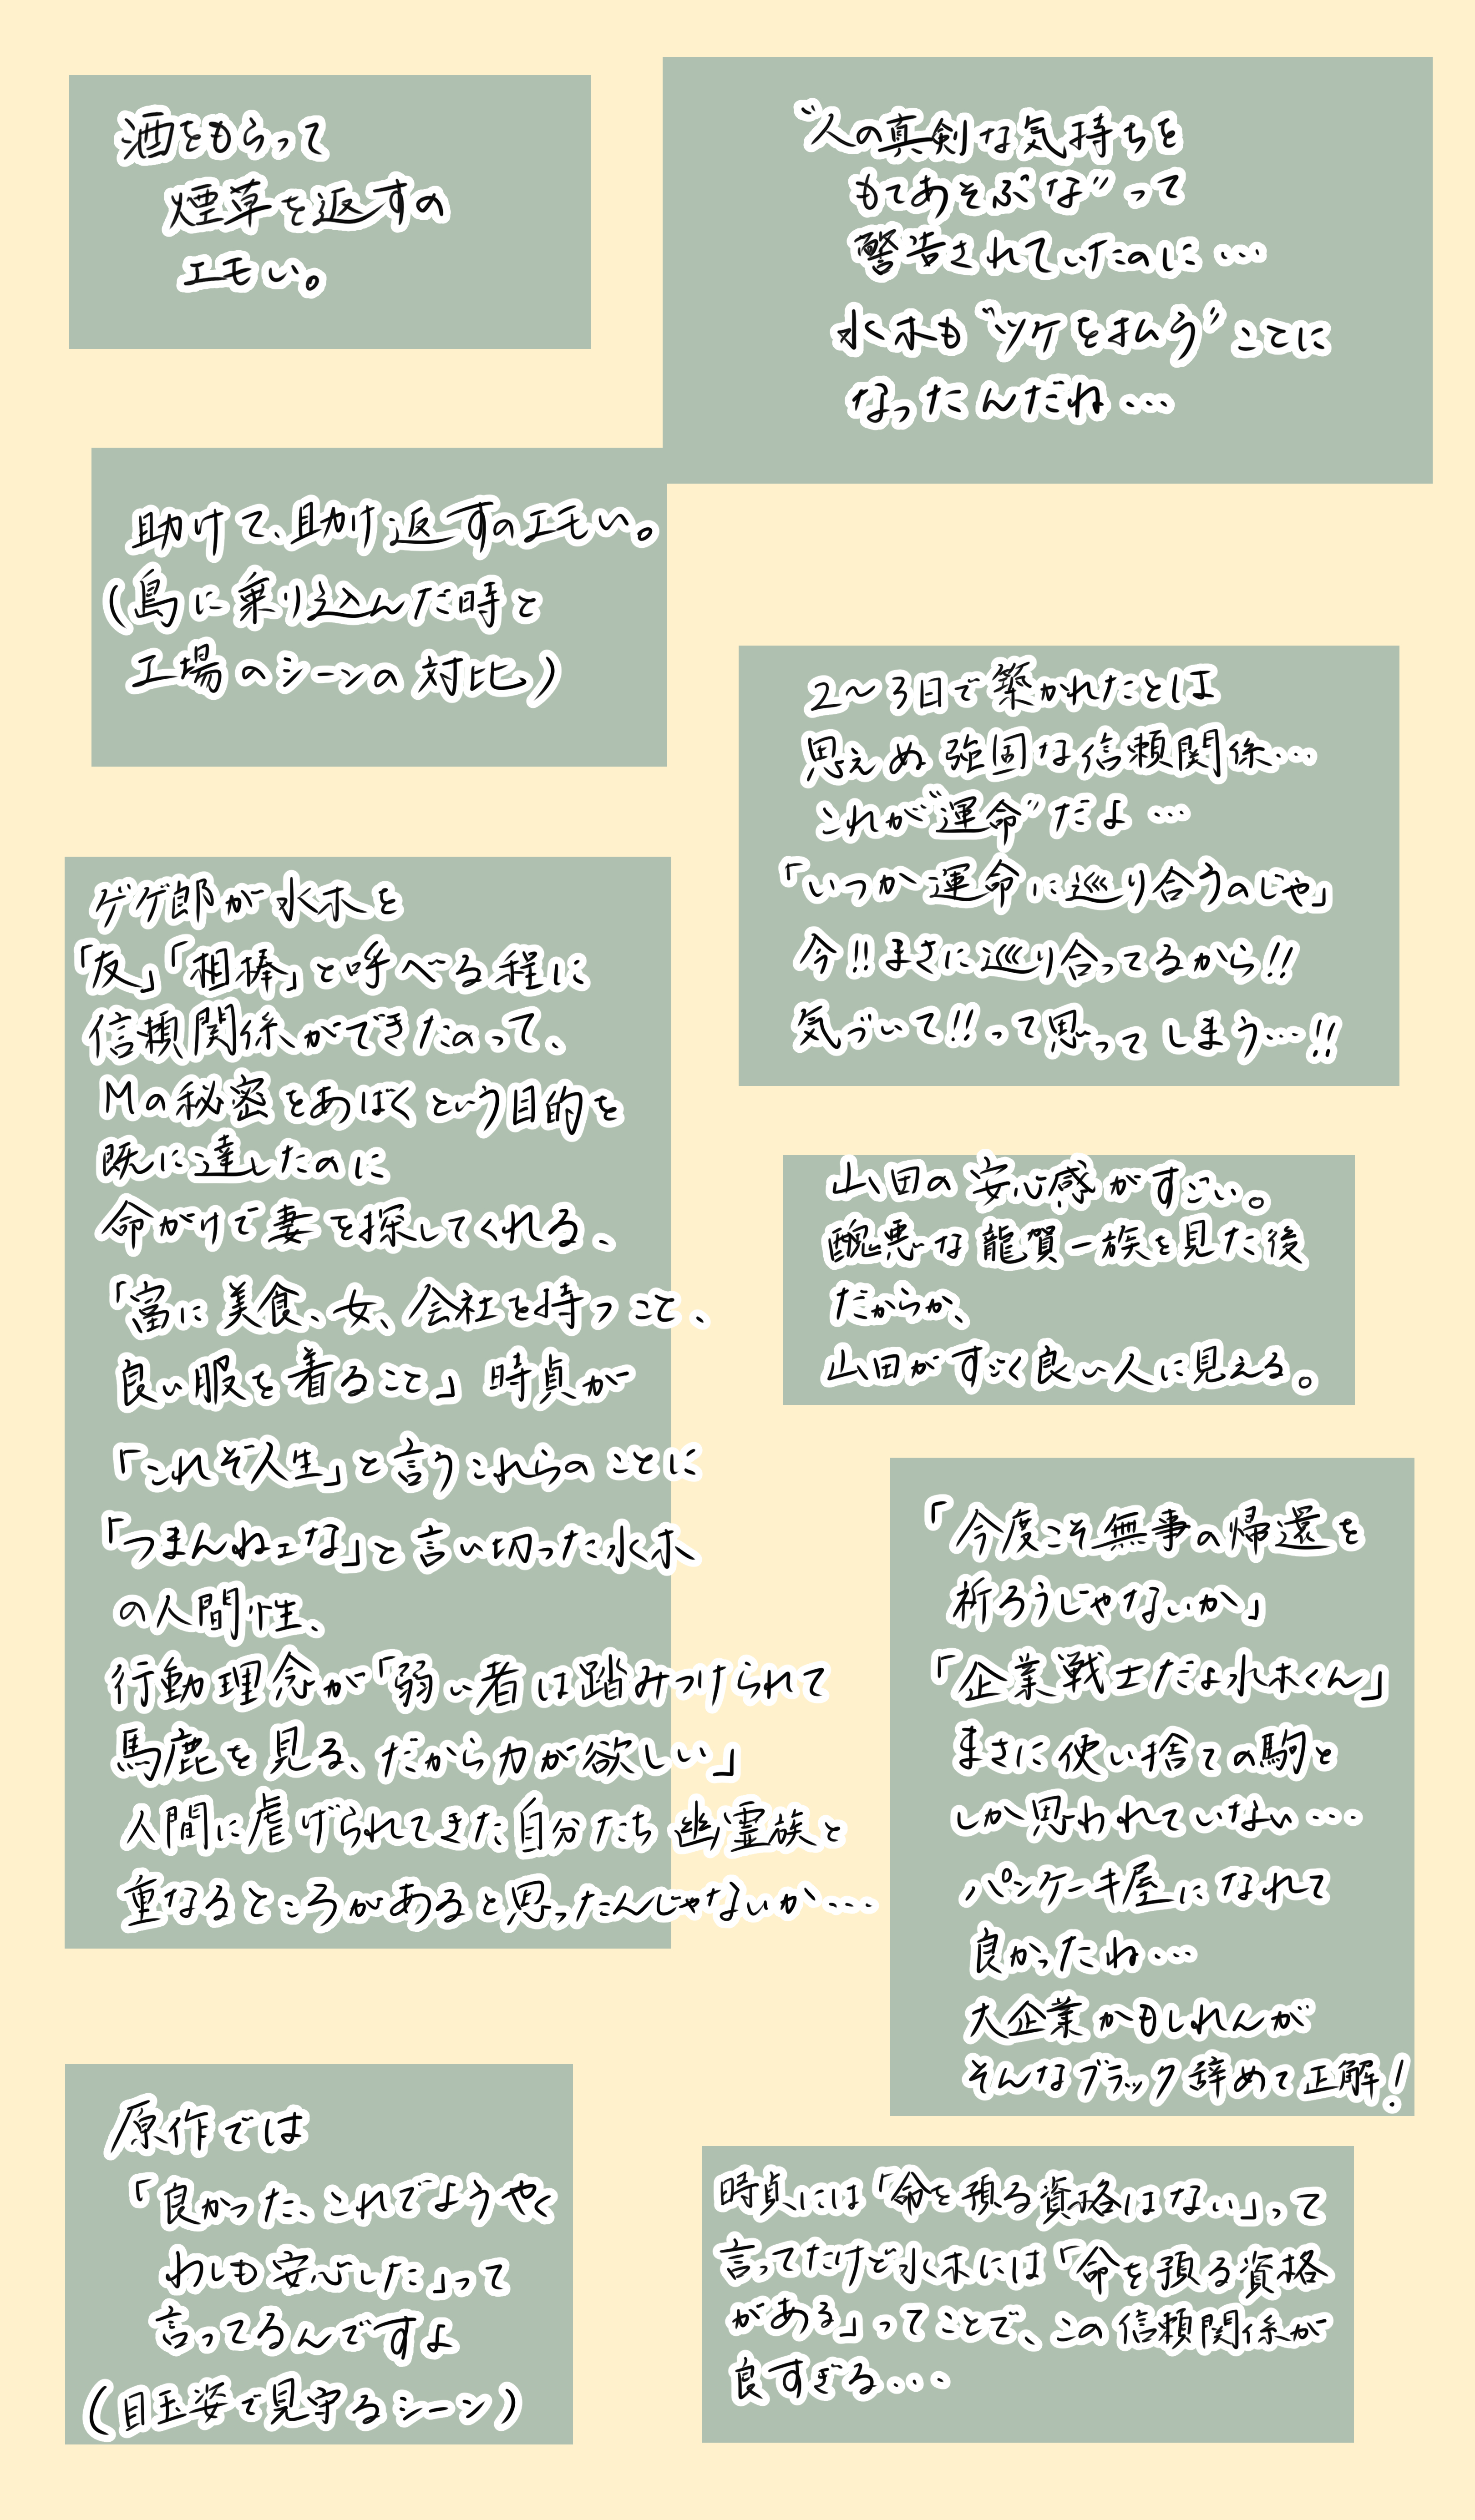 酒をもらって
煙草を返すの
エモい。
"人の真剣な気持ちを
もてあそぶな"って
警告されていたのに…
水木も"ツケを払う"ことに
なったんだね…
助けて、助け返すのエモい。
(島に乗り込んだ時と
工場のシーンの対比)
2～3日で築かれたとは
思えぬ強固な信頼関係…
これが"運命"だよ…
「いつか運命に巡り合うのじゃ」
今!!まさに巡り合ってるから!!
気づいて!!って思ってしまう…!!
ゲゲ郎が水木を
「友」「相棒」と呼べる程に
信頼関係ができたのって、
Mの秘密をあばくという目的を
既に達したのに
命がけで妻を探してくれる、
「富に美食、女、会社を持つこと、
良い服を着ること」時貞が
「これぞ人生」と言うこれらのことに
「つまんねェな」と言い切った水木
の人間性、
行動理念が「弱い者は踏みつけられて
馬鹿を見る、だから力が欲しい」
人間に虐げられてきた自分たち幽霊族と
重なるところがあると思ったんじゃないか…
山田の安心感がすごい。
醜悪な龍賀一族を見た後
だからか、
山田がすごく良い人に見える。
「今度こそ無事の帰還を
祈ろうじゃないか」
「企業戦士だよ水木くん」
まさに使い捨ての駒と
しか思われていない…
パンケーキ屋になれて
良かったね…
大企業かもしれんが
そんなブラック辞めて正解!
原作では
「良かった、これでようやく
わしも安心した」って
言ってるんですよ
(目玉姿で見守るシーン)
時貞には「命を預る資格はない」って
言ってたけど水木には「命を預る資格
がある」ってことで、この信頼関係が
良すぎる…